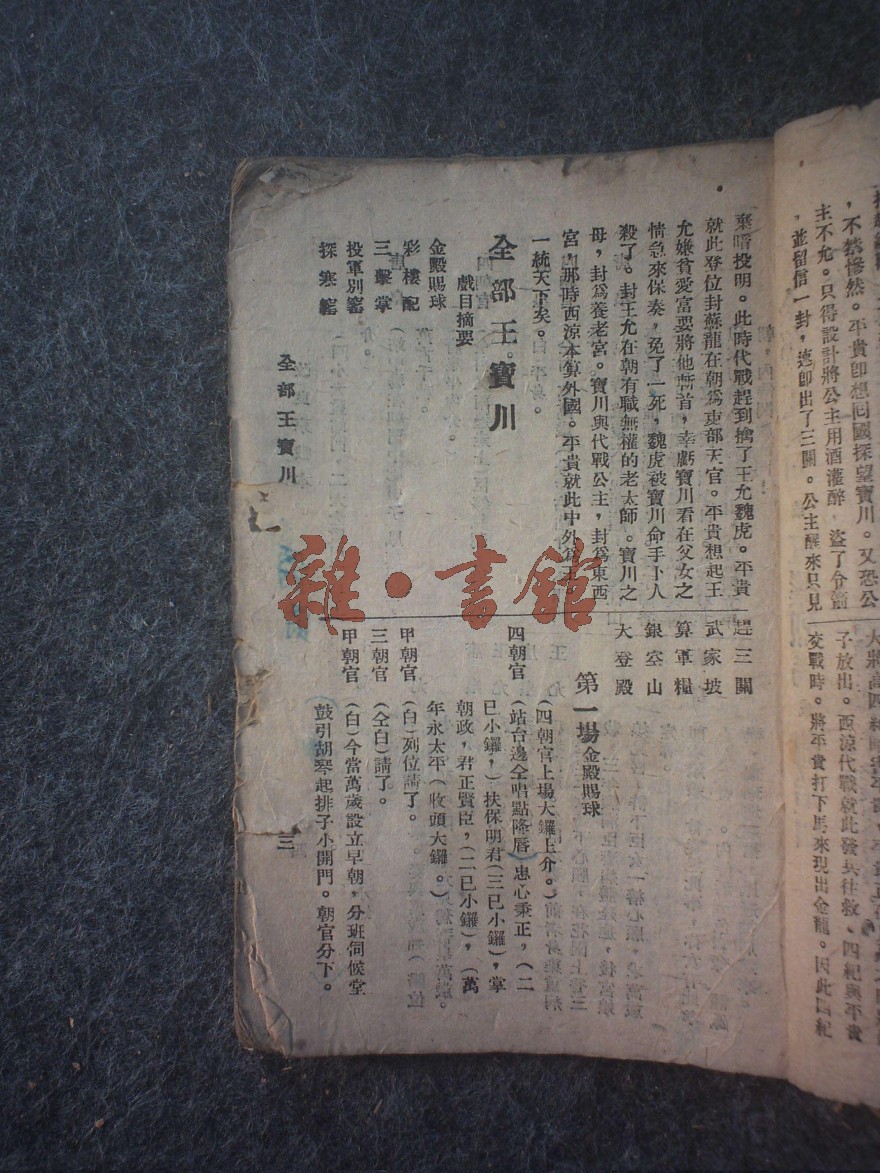 主不允。只得設計將公主用酒灌醉
，並留信一封，連卽出了三關。公主醒來只見
交戰時。將平貴打下馬來現出金龍。因此四紀
棄暗投明。此時代戰趕到擒了王允魏虎。平貴
就此登位封蘇龍在朝爲吏部天官。平貴想起王
允嫌貧愛富要將他斬首，幸虧寶川看在父女之
情急來保奏，免了一死，魏虎被寶川命手下人
殺了。封王允在朝有職無權的老太師。寶川之
母，封爲養老宮。寶川與代戰公主，封爲東西
宮，那時西涼本算外國。平貴就此中外爲王
一統天下矣。
全部王寶川
戲目摘要
金殿賜球
彩樓配
三擊掌
投軍別窰
探寒窰
趕三關
武家坡
算軍糧
銀空山
大登殿
第一場 金殿賜球
（四朝官上場大鑼上介。）
四朝官 （站台邊全唱點降唇）忠心秉正，（二
已小鑼，）扶保明君（三已小鑼），掌
朝政，君正賢臣，（二已小鑼），（萬
年永太平（收頭大鑼。）
甲朝官 （白）列位請了。
三朝官 （仝白）請了。
甲朝官 （白）今當萬歲設立早朝，分班伺候堂
鼓引胡琴起排子小開門。朝官分下。
全部王寶川
三
雜·書館